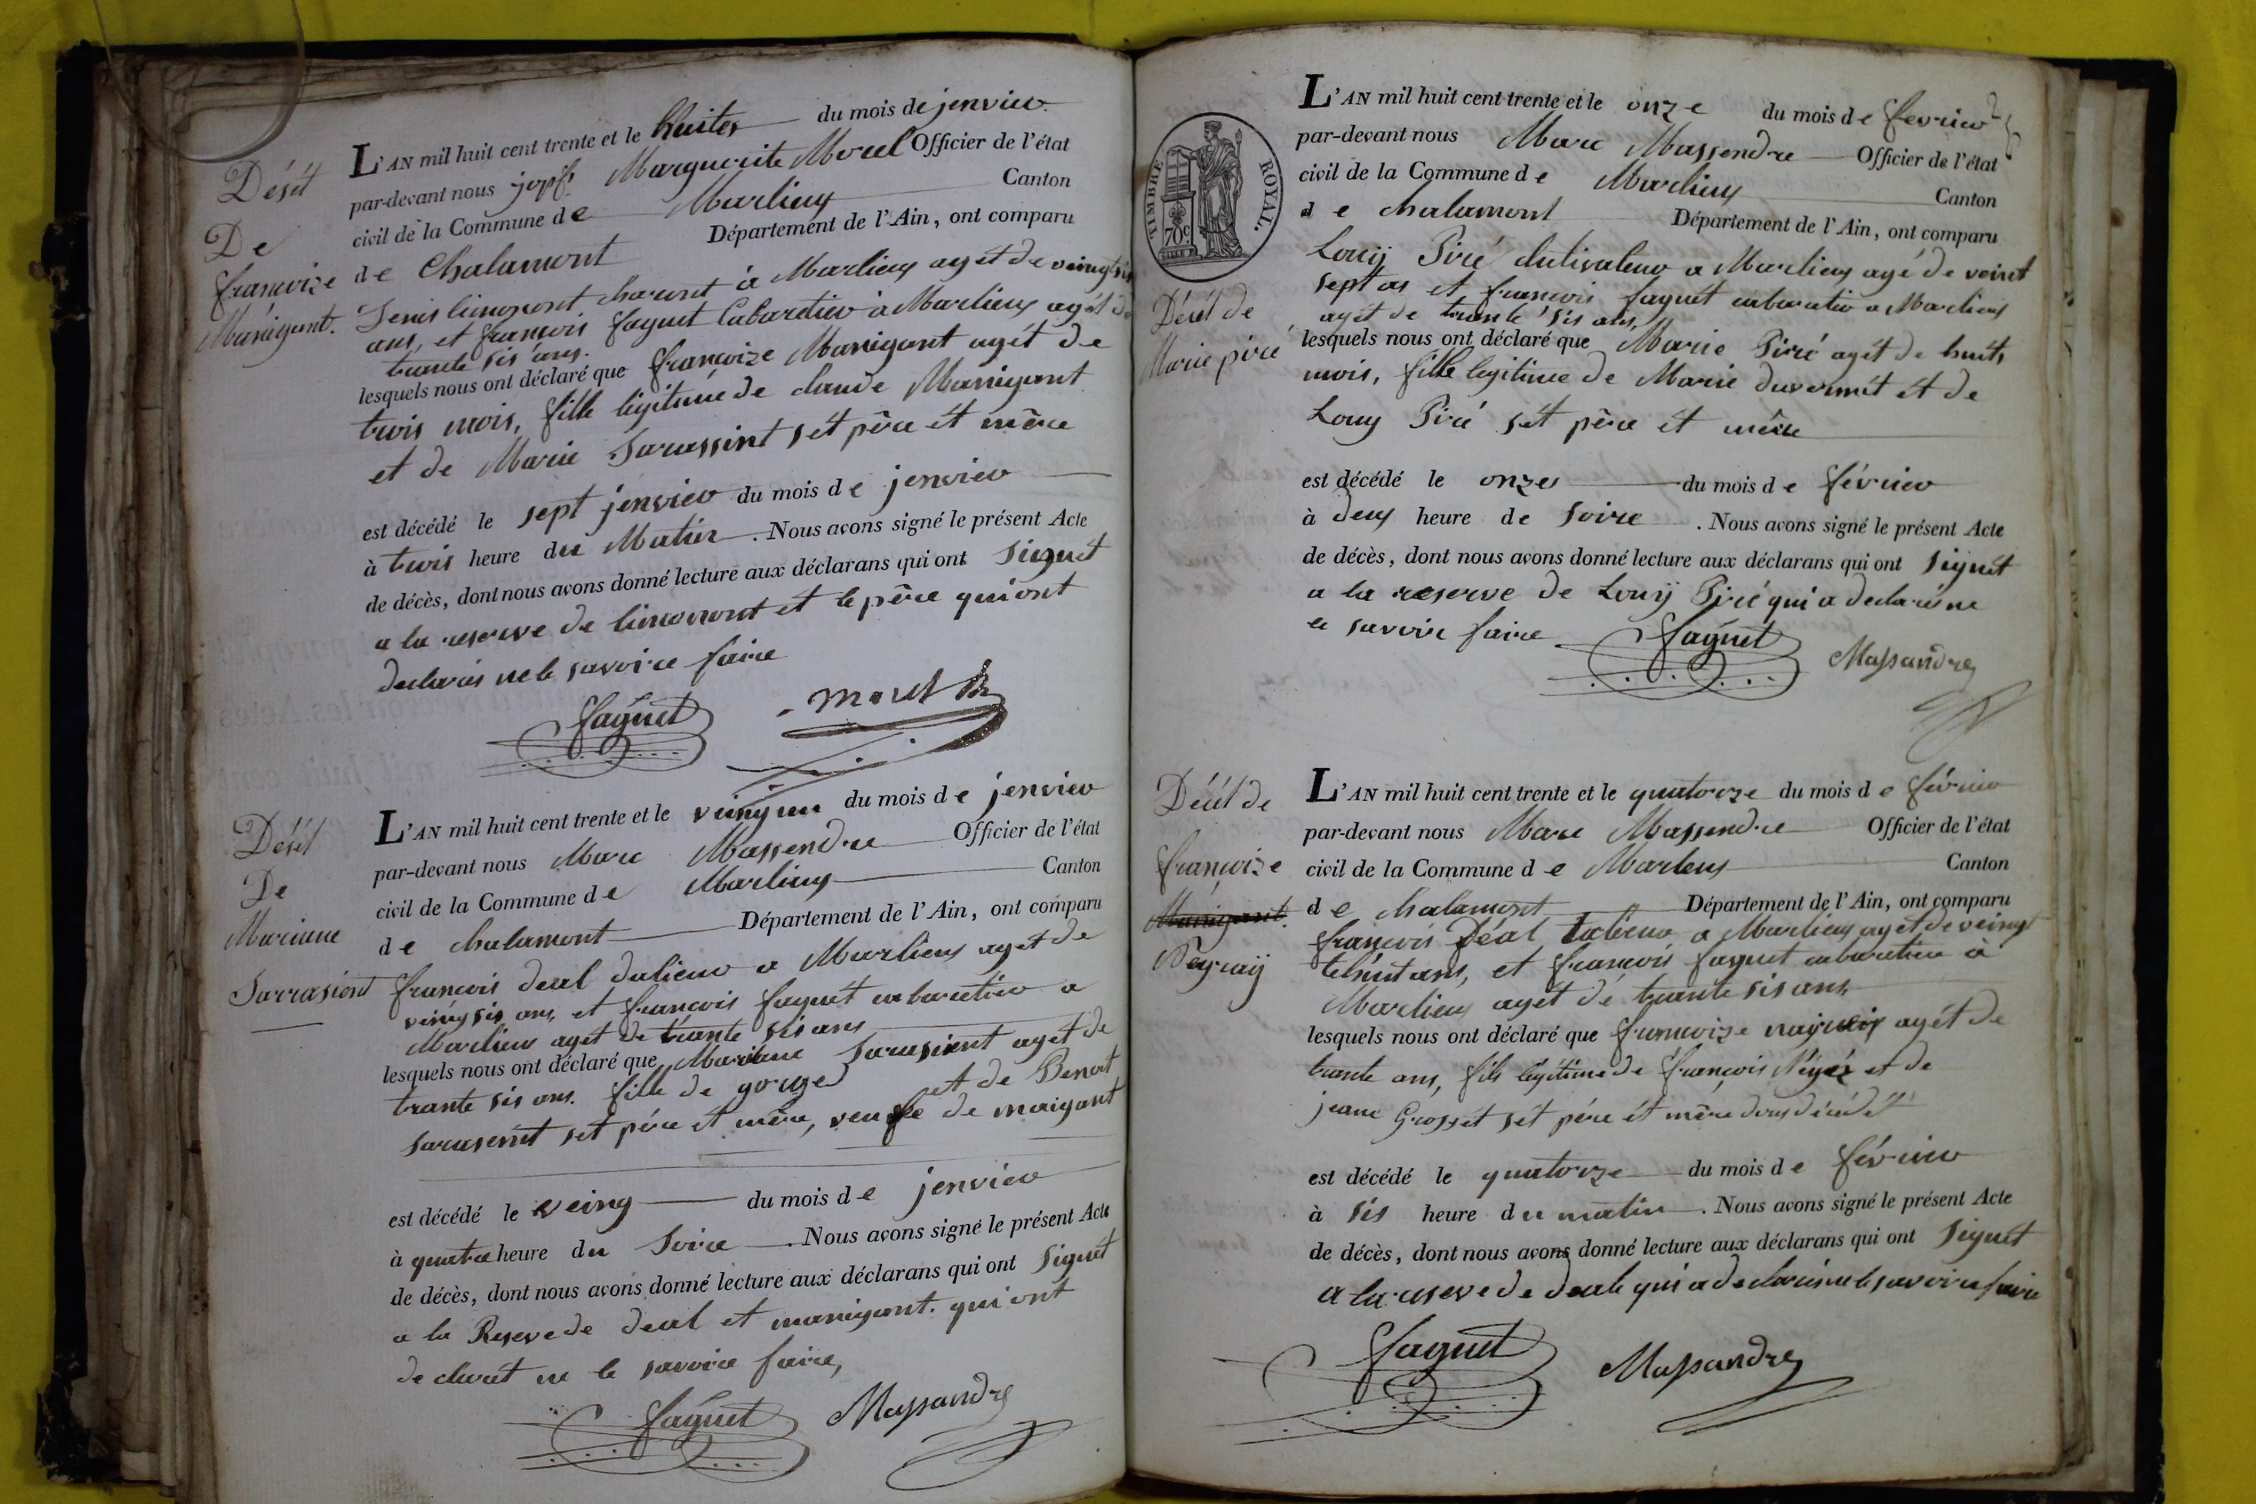 Dését
De
françoize
Manigant.
L'AN mil huit cent trente et le huiter du mois de jenvier
par-devant nous Marguerite Morel Officier de l'état
civil de la Commune de Marlieux Canton
de Chalamont Département de l'Ain, ont comparu
Denis limonont charont à Marlieux agét de veingt sis
ans, et françois faguet Cabartier à Marlieux agét de
trante sis ans.
lesquels nous ont déclaré que françoize Manigant agét de
trois mois, fille legitime de claude Manigant
et de Marie Sarassint sét père ét mère
est décédé le sept jenvier du mois de jenvier
à trois heure du Matin. Nous avons signé le présent Acte
de décès, dont nous avons donné lecture aux déclarans qui ont Signét
a la reserve de limonont et le père qui ont
declarés ne le savoire faire
faguet
morel
Dését
De
Mariane
Sarrasient
L'AN mil huit cent trente et le veingun du mois de jenvier
par-devant nous Marc Massendre Officier de l'état
civil de la Commune de Marlieux Canton
de chalamont Département de l'Ain, ont comparu
françois deal dalieur a Marlieux agét de
veingsis ans, et françois faguét cabaretier a
Marlieux agét de trante sis ans
lesquels nous ont déclaré que Mariane Sarasient agét de
trante sis ans. fille de et de Benoit
Sarasernt sét père ét mère, veufe de maigant
est décédé le veing du mois de jenvier
à quatre heure du Soire. Nous avons signé le présent Acte
de décès, dont nous avons donné lecture aux déclarans qui ont Signét
a la Reserve de deal et manigant. qui ont
declarét ne le savoire faire,
faguet Massandre
TIMBRE ROYAL.
70c.
Décét de
Marie piré
L'AN mil huit cent trente et le onze du mois de fevrier
par-devant nous Marc Massendre Officier de l'état
civil de la Commune de Marlieux Canton
de chalamont Département de l'Ain, ont comparu
Louij Piré cultivateur a Marlieux agé de veint
sept as et françois faguét cabaratier a Marlieux
agét de trante sis ans,
lesquels nous ont déclaré que Marie Piré agét de huits
mois, fille legitime de Marie duvernét ét de
Louy Piré sét père ét mère
est décédé le onze du mois de février
à deux heure de Soire. Nous avons signé le présent Acte
de décès, dont nous avons donné lecture aux déclarans qui ont Signét
a la reserve de Louij Piré qui a declaré ne
le savoir faire
faguet Massandre
Décét de
françoize
Manigant.
L'AN mil huit cent trente et le quatorze du mois de février
par-devant nous Marc Massendre Officier de l'état
civil de la Commune de Marlieux Canton
de chalamont Département de l'Ain, ont comparu
françois Déal a Marlieux agét de veingt
tehuit ans, et françois faguet cabaretier à
Marlieux agét de trante sis ans,
lesquels nous ont déclaré que francoize agét de
trante ans, fils légitime de françois et de
jeane Grossét sét père ét mère dous décédét
est décédé le quatorze du mois de février
à sis heure du matin. Nous avons signé le présent Acte
de décès, dont nous avons donné lecture aux déclarans qui ont Signét
a la reseve de deale qui a declarés ne le savoire faire
faguet Massandre